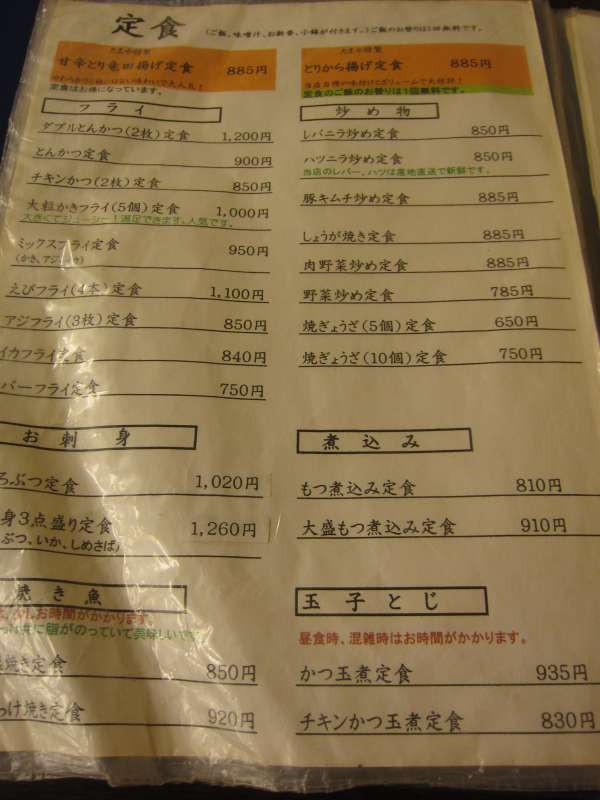 定食 (ご飯、味噌汁、お新香、小鉢が付きます。)ご飯のお替りは1回無料です。
たまや特製
甘辛とり竜田揚げ定食 885円
定食はお得になっています。
フライ
ダブルとんかつ(2枚)定食 1,200円
とんかつ定食 900円
チキンかつ(2枚)定食 850円
大粒かきフライ(5個)定食 1,000円
大きくてジューシー!満足できます。人気です。
ミックスフライ定食 950円
えびフライ(4本)定食 1,100円
アジフライ(3枚)定食 850円
イカフライ定食 840円
バーフライ定食 750円
お刺身
ろぶつ定食 1,020円
身3点盛り定食 1,260円
ぶつ、いか、しめさば)
焼き魚
お時間がかかります。
脂がのっていて美味しいです
焼き定食 850円
っけ焼き定食 920円
たまや特製
とりから揚げ定食 885円
当店自慢の味付けとボリュームで大好評!
定食のご飯のお替りは1回無料です。
炒め物
レバニラ炒め定食 850円
ハツニラ炒め定食 850円
当店のレバー、ハツは産地直送で新鮮です。
豚キムチ炒め定食 885円
しょうが焼き定食 885円
肉野菜炒め定食 885円
野菜炒め定食 785円
焼ぎょうざ(5個)定食 650円
焼ぎょうざ(10個)定食 750円
煮込み
もつ煮込み定食 810円
大盛もつ煮込み定食 910円
玉子とじ
昼食時、混雑時はお時間がかかります。
かつ玉煮定食 935円
チキンかつ玉煮定食 830円